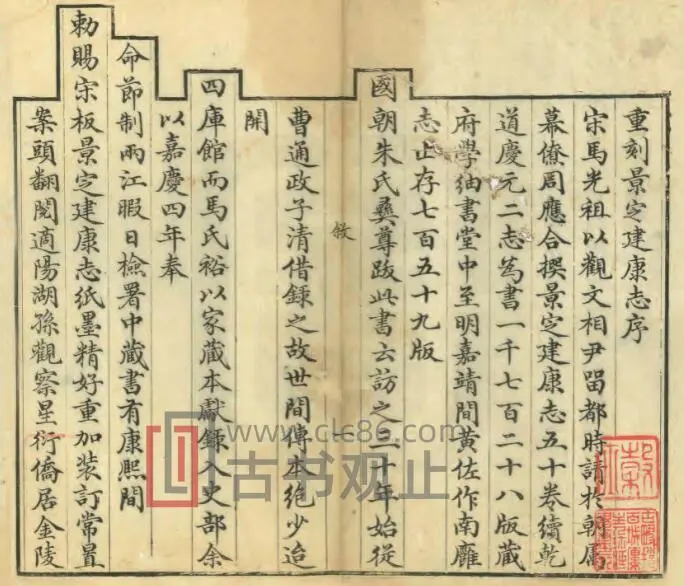 重刻景定建康志序
宋馬光祖以觀文相尹畱都時請於朝屬
幕僚周應合撰景定建康志五十卷續乾
道慶元二志為書一千七百二十八版藏
府學紬書堂中至明嘉靖間黃佐作南廱
志止存七百五十九版
國朝朱氏彝尊跋此書云訪之三十年始從
敘
曹通政子清借錄之故世間傳本絶少迨
開
四庫館而馬氏裕以家藏本獻錄入史部余
以嘉慶四年奉
命節制兩江暇日檢署中藏書有康熙間
勅賜宋板景定建康志紙墨精好重加装訂常置
案頭翻閱適陽湖孫觀察星衍僑居金陵
www.clc86.com
古书观止